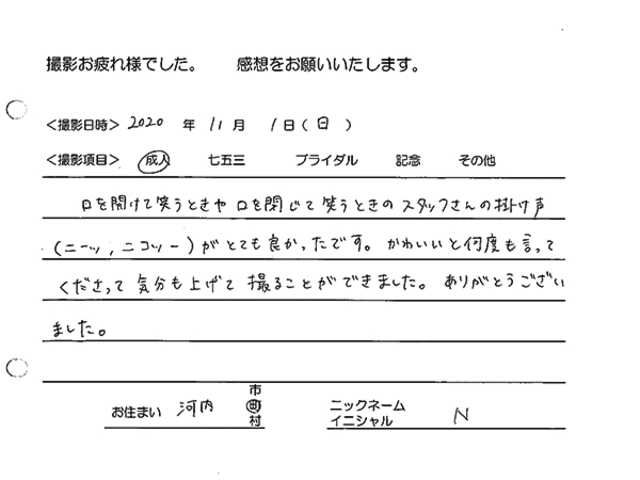 撮影お疲れ様でした。　感想をお願いいたします。
＜撮影日時＞ 2020 年 11月 1日(日)
＜撮影項目＞ 成人 七五三 ブライダル 記念 その他
口を開けて笑うときや口を閉じて笑うときのスタッフさんの掛け声
(ニーッ,ニコッー)がとても良かったです。かわいいと何度も言って
くださって気分も上げて撮ることができました。ありがとうござい
ました。
お住まい 河内 市町村
ニックネーム
イニシャル N